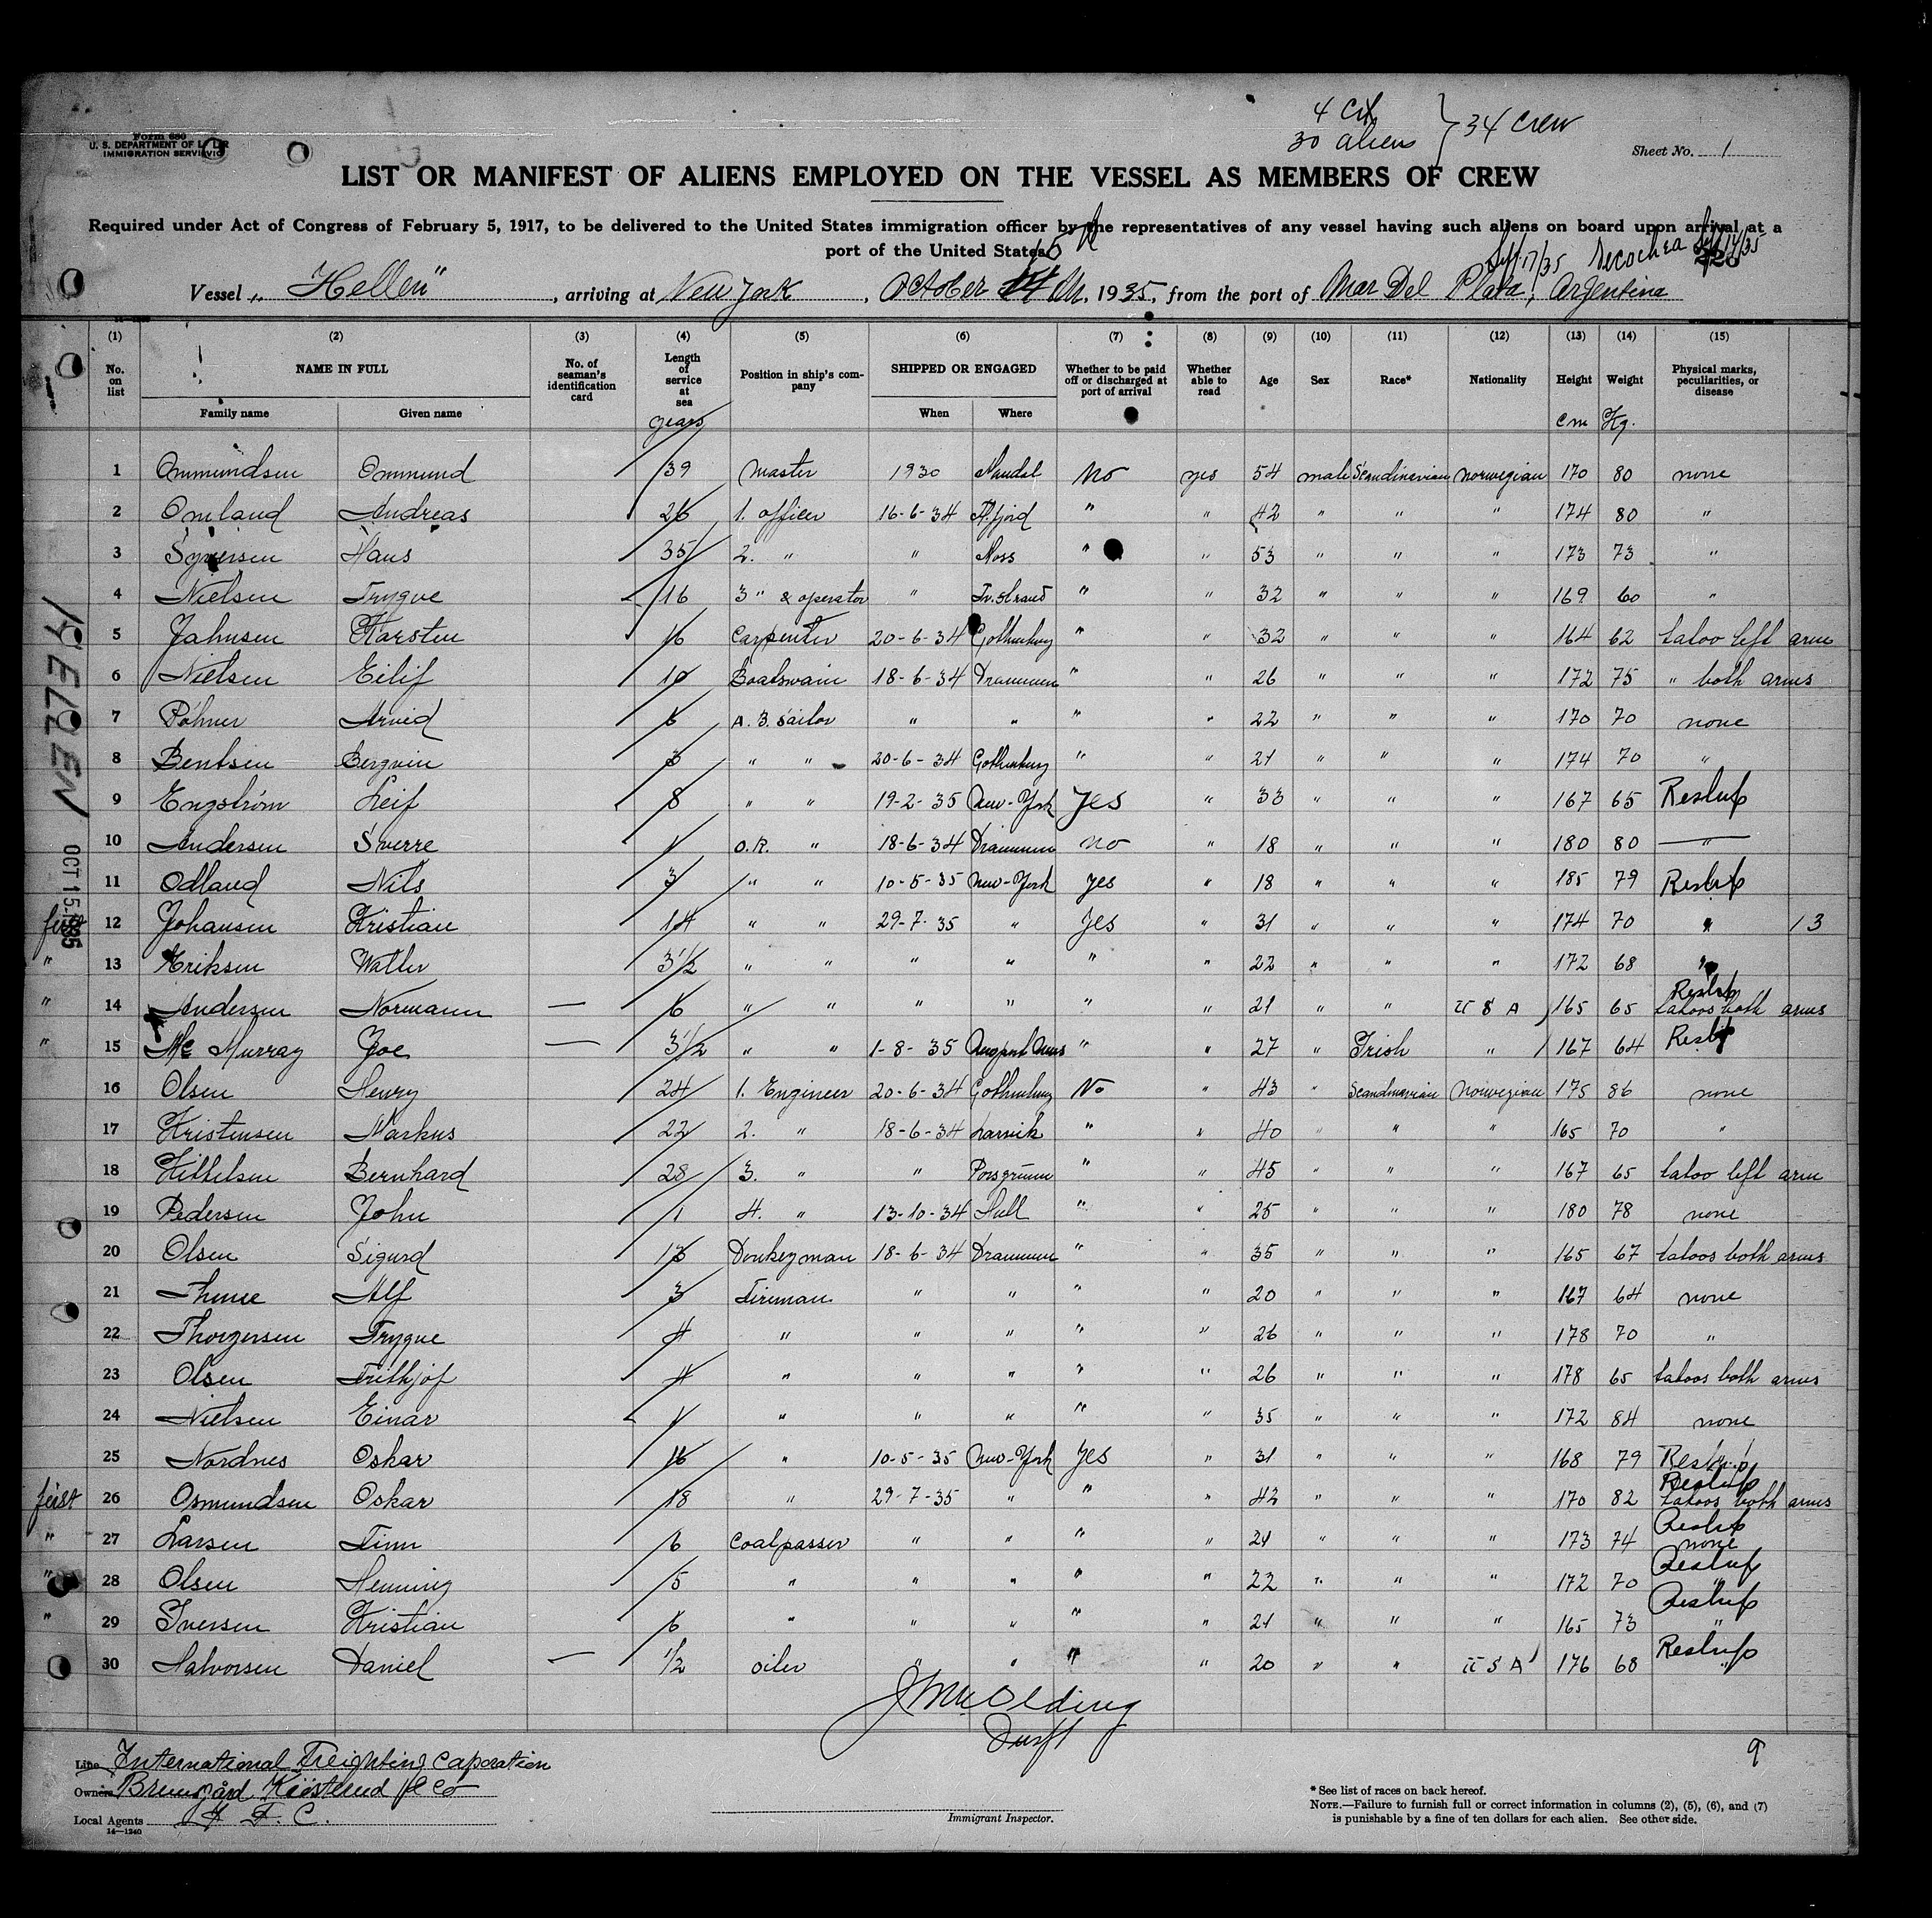 4 cit
30 aliens } 34 crew
Form 680
U. S. DEPARTMENT OF LABOR
IMMIGRATION SERVICE
Sheet No. 1
LIST OR MANIFEST OF ALIENS EMPLOYED ON THE VESSEL AS MEMBERS OF CREW
Required under Act of Congress of February 5, 1917, to be delivered to the United States immigration officer by the representatives of any vessel having such aliens on board upon arrival at a
port of the United States
Sept. 17/35 Necochea Sept 14/35
Vessel „ Hellen" , arriving at New York , October th, 1935, from the port of Mar Del Plata, Argentina
(1) (2) (3) (4) (5) (6) (7) (8) (9) (10) (11) (12) (13) (14) (15)
No. on list NAME IN FULL No. of seaman's identification card Length of service at sea Position in ship's company SHIPPED OR ENGAGED Whether to be paid off or discharged at port of arrival Whether able to read Age Sex Race* Nationality Height Weight Physical marks, peculiarities, or disease
Family name Given name years When Where cm Kg.
1 Ommundsen Ommund 39 master 1930 Mandal No yes 54 male Scandinavian norwegian 170 80 none
2 Omland Andreas 26 1. officer 16-6-34 " " 42 " " " 174 80 "
3 Syversen Hans 35 2. " " Moss " " 53 " " " 173 73 "
4 Nielsen Trygve 16 3 " & operator " Tv.strand " " 32 " " " 169 60 "
5 Jahnsen Karsten 16 Carpenter 20-6-34 Gothenburg " " 32 " " " 164 62 tatoo left arm
6 Nielsen Eilif 10 Boatswain 18-6-34 Drammen " " 26 " " " 172 75 " both arms
7 Pöhner Arvid 6 A. B. sailor " " " " 22 " " " 170 70 none
8 Bentsen Bergvin 3 " " 20-6-34 Gothenburg " " 21 " " " 174 70 "
9 Engström Leif 8 " " 19-2-35 New-York Yes " 33 " " " 167 65 Reship
10 Andersen Sverre 1 O.R. " 18-6-34 Drammen no " 18 " " " 180 80 "
11 Odland Nils 3 " " 10-5-35 New-York yes " 18 " " " 185 79 Reship
first 12 Johansen Kristian 14 " " 29-7-35 " Yes " 31 " " " 174 70 " 13
" 13 Eriksen Walter 3½ " " " " " " 22 " " " 172 68 "
" 14 Andersen Normann — 6 " " " " " " 21 " " U S A 165 65 Reship tatoos both arms
" 15 Mc Murray Joe — 3½ " " 1-8-35 " " 27 " Irish " 167 64 Reship
16 Olsen Henry 24 1. Engineer 20-6-34 Gothenburg No " 43 " Scandinavian Norwegian 175 86 none
17 Kristensen Markus 22 2. " 18-6-34 Larvik " " 40 " " " 165 70 "
18 Kittelsen Bernhard 28 3. " " Porsgrunn " " 45 " " " 167 65 tatoo left arm
19 Pedersen John 1 4. " 13-10-34 Hull " " 25 " " " 180 78 none
20 Olsen Sigurd 13 Donkeyman 18-6-34 Drammen " " 35 " " " 165 67 tatoos both arms
21 Thune Alf 3 Fireman " " " " 20 " " " 167 64 none
22 Thorgersen Trygve 4 " " " " " 26 " " " 178 70 "
23 Olsen Frithjof 4 " " " " " 26 " " " 178 65 tatoos both arms
24 Nielsen Einar 1 " " " " " 35 " " " 172 84 none
25 Nordnes Oskar 16 " 10-5-35 New-York Yes " 31 " " " 168 79 Reship
first 26 Osmundsen Oskar 18 " 29-7-35 " " " 42 " " " 170 82 Reship tatoos both arms
" 27 Larsen Finn 6 Coalpasser " " " " 21 " " " 173 74 Reship none
" 28 Olsen Henning 5 " " " " " 22 " " " 172 70 Reship "
" 29 Iversen Kristian 6 " " " " " 21 " " " 165 73 Reship "
30 Halvorsen Daniel — ½ oiler " " " " 20 " " U S A 176 68 Reship "
OCT 15 1935
Line International Freighting Caporation
Owners & Co
Local Agents I. F. C.
14—1240
Immigrant Inspector.
9
* See list of races on back hereof.
NOTE.—Failure to furnish full or correct information in columns (2), (5), (6), and (7)
is punishable by a fine of ten dollars for each alien. See other side.